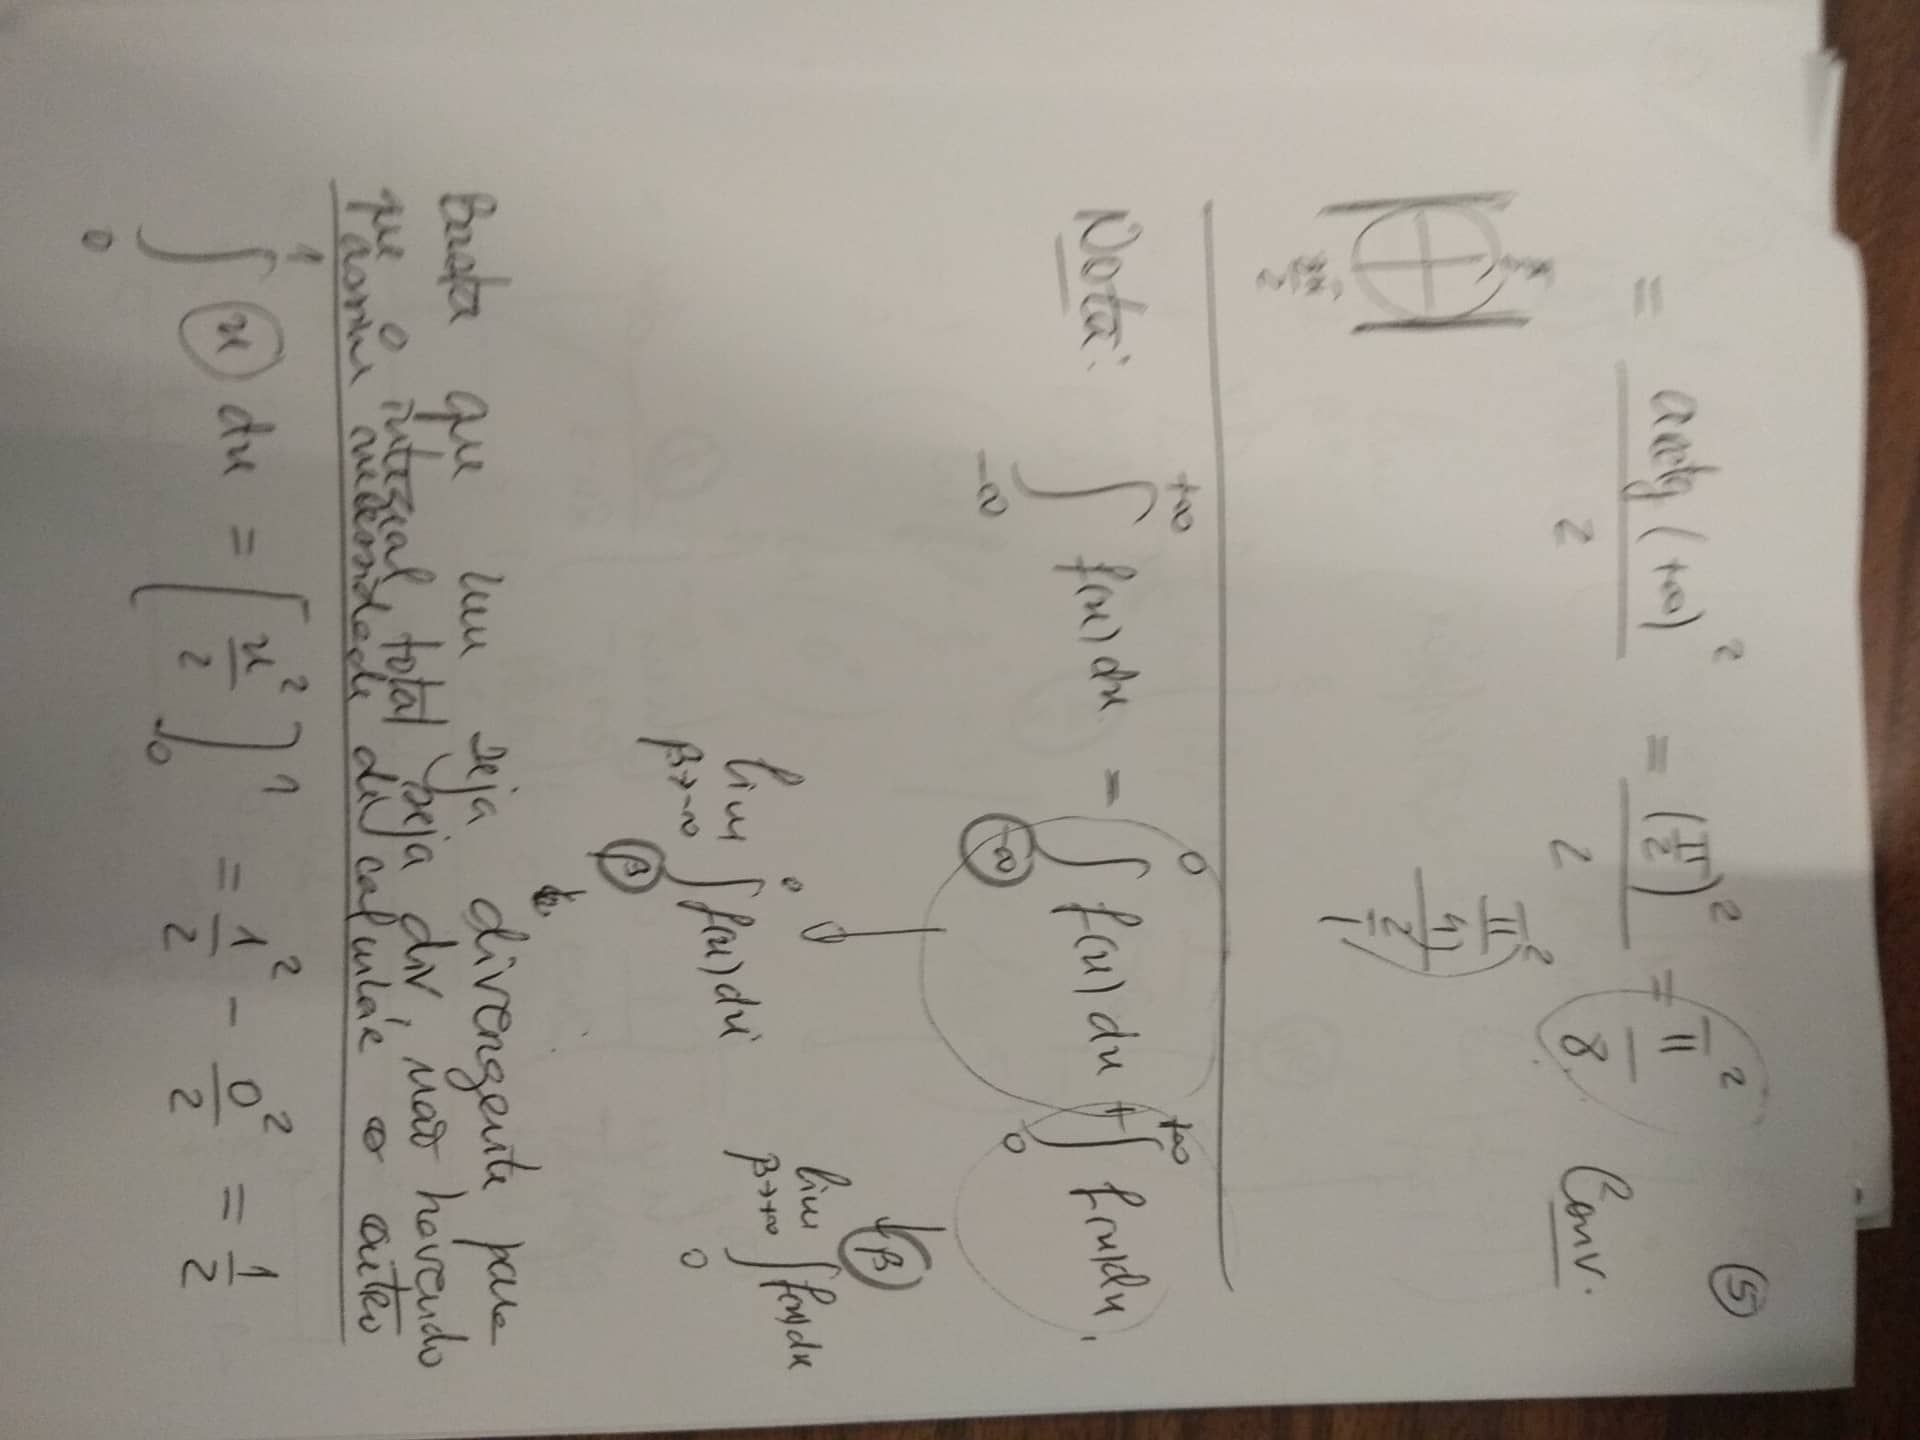 5
= arctg (+∞)² / 2 = (π/2)² / 2 = π² / 8 Conv.
π² / 4 / 2 / 1
Nota: ∫_{-∞}^{+∞} f(x) dx = ∫_{-∞}^{0} f(x) dx + ∫_{0}^{+∞} f(x) dx,
β
lim β→-∞ ∫_{β}^{0} f(x) dx lim β→+∞ ∫_{0}^{β} f(x) dx
Basta que um seja divergente para
que o integral total seja div, não havendo
assim necessidade de calcular o outro
∫_{0}^{1} x dx = [x²/2]_{0}^{1} = 1²/2 - 0²/2 = 1/2